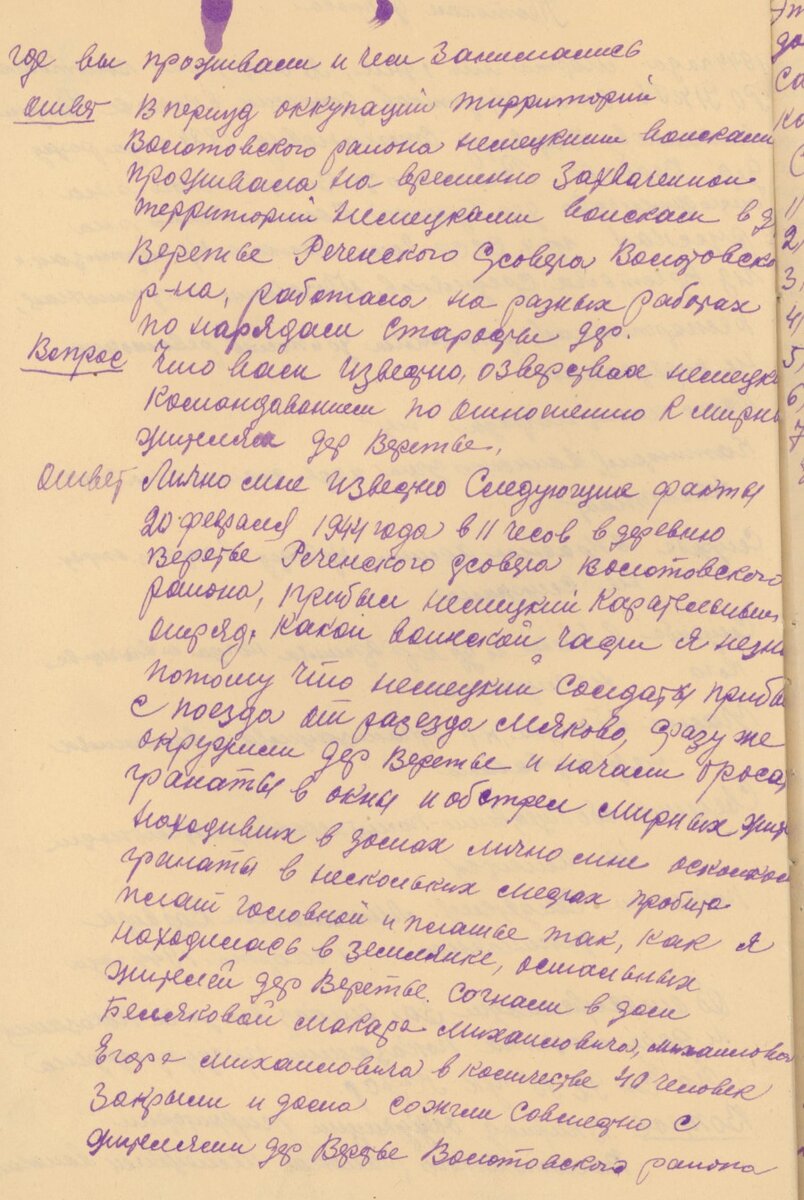 где вы проживали и чем занимались
Ответ В период оккупаций территорий
Волотовского района немецкими воисками
проживала на временно захваченной
территорий немецкими воисками в д.
Веретье Реченского с/совета Волотовско
р-на, работала на разных работах
по нарядам старосты дер.
Вопрос Что вам известно, озверствах немецк
командованием по отношению к мирны
жителям дер Веретье.
Ответ Лично мне известно следующие факты
20 февраля 1944 года в 11 часов в деревню
Веретье Реченского с/совета Волотовского
района, прибыл немецкий карательный
отряд. Какой воинской части я незн
потому что немецкий солдаты прибы
с поезда от разезда Мяково, сразу же
окружили дер Веретье и начали броса
гранаты в окны и обстрел мирных жит
находивих в домах лично мне осколком
гранаты в нескольких местах пробита
плат головной и платье так, как я
находилась в землянке, остальных
жителей дер Веретье. согнали в дом
Беляковой Макара Михаиловича, Михаилово
Егора Михаиловича в количестве 40 человек
Закрыли и дома сожгли совместно с
жителями дер Веретье Волотовского района
11
2,
3,
4,
5,
6,
7